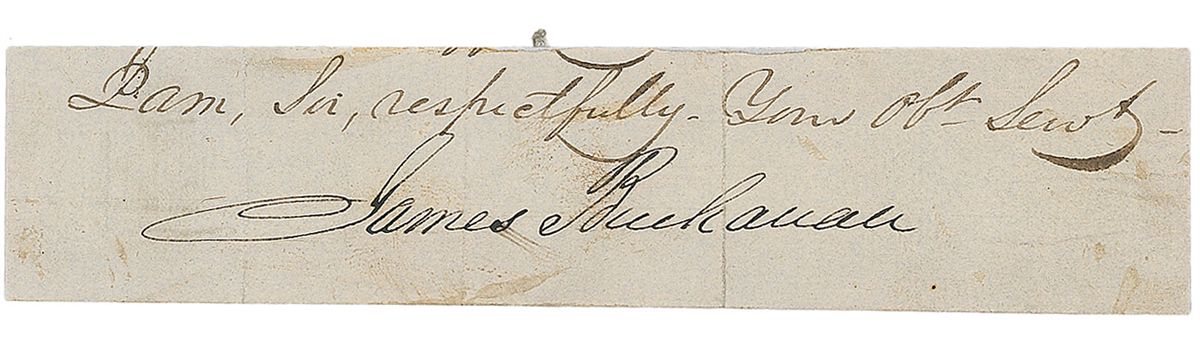 I am, Sir, respectfully- Your Obt Servt-
James Buchanan